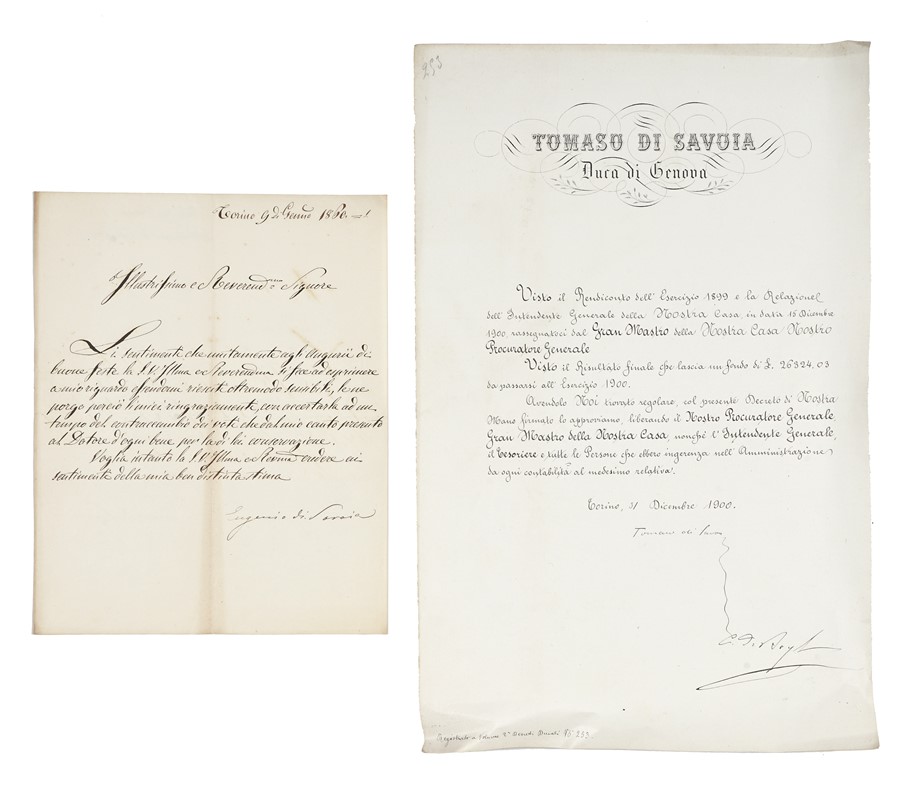 Torino 9 di Genn.º 1860.
Illustrissimo e Reverend.mo Signore
Li sentimenti che unitamente agli augurii di
buone feste la S.V. Ill.ma e Reverendma si fece ad esprimere
a mio riguardo rendonmi riescite oltremodo sensibili, le ne
porgo perciò li miei ringraziamenti, con accertarla ad un
tempo del contraccambio dei voti che dal mio canto presento
al Datore d'ogni bene per la di lei conservazione.
Voglia intanto la S.V. Ill.ma e Rev.ma credere ai
sentimenti della mia ben distinta stima
Eugenio di Savoia
253
TOMASO DI SAVOIA
Duca di Genova
Visto il Rendiconto dell'Esercizio 1899 e la Relazione
dell'Intendente Generale della Nostra Casa, in data 15 Dicembre
1900, rassegnatoci dal Gran Mastro della Nostra Casa Nostro
Procuratore Generale
Visto il Risultato finale che lascia un fondo di £. 26324,03
da passarsi all'Esercizio 1900.
Avendolo Noi trovato regolare, col presente Decreto di Nostra
Mano firmato lo approviamo, liberando il Nostro Procuratore Generale,
Gran Mastro della Nostra Casa, nonchè l'Intendente Generale,
il Tesoriere e tutte le Persone che ebbero ingerenza nell'Amministrazione
da ogni contabilità al medesimo relativa.
Torino, 31 Dicembre 1900.
Tomaso di Savoia
Registrato a
Decreti Ducali Nº 253